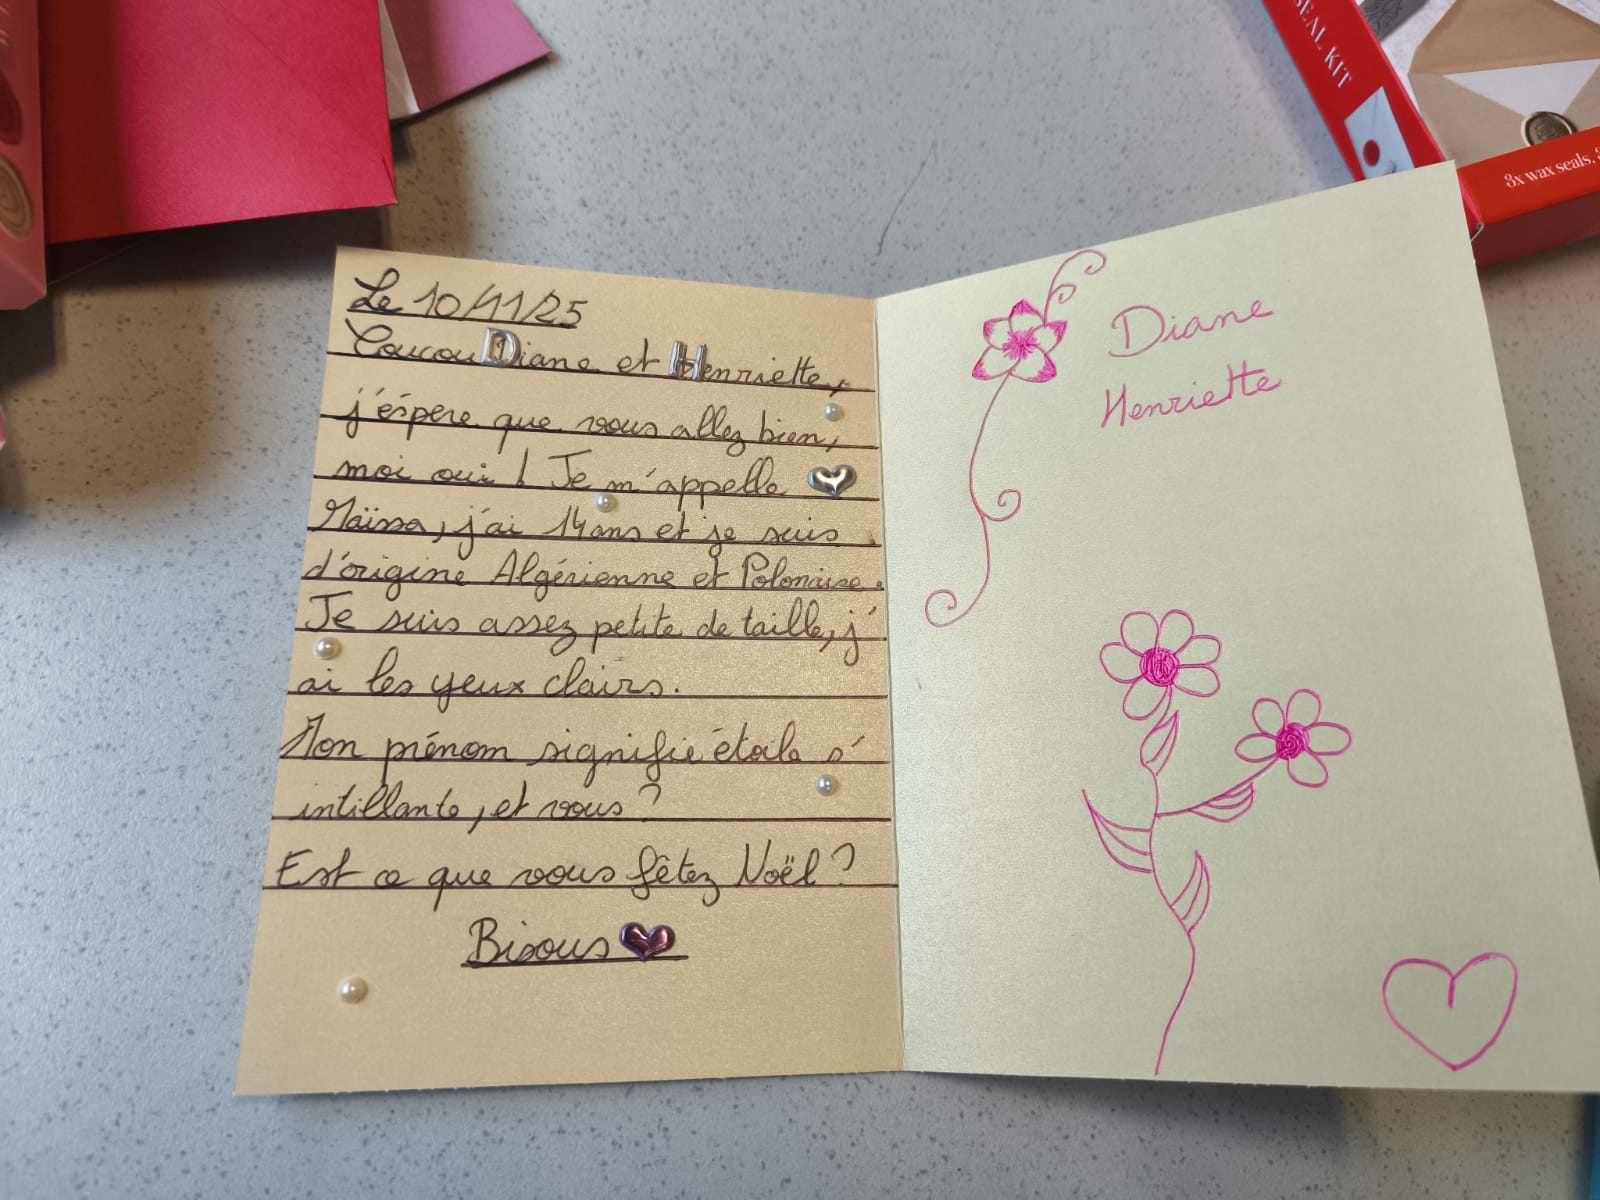 SEAL KIT
3x wax seals, 3
Le 10/11/25
Coucou Diane et Henriette,
j'éspere que vous allez bien,
moi oui ! Je m'appelle
Maïssa, j'ai 14 ans et je suis
d'origine Algérienne et Polonaise.
Je suis assez petite de taille, j'
ai les yeux clairs.
Mon prénom signifie étoile s'
intillante, et vous ?
Est ce que vous fêtez Noël ?
Bisous
Diane
Henriette